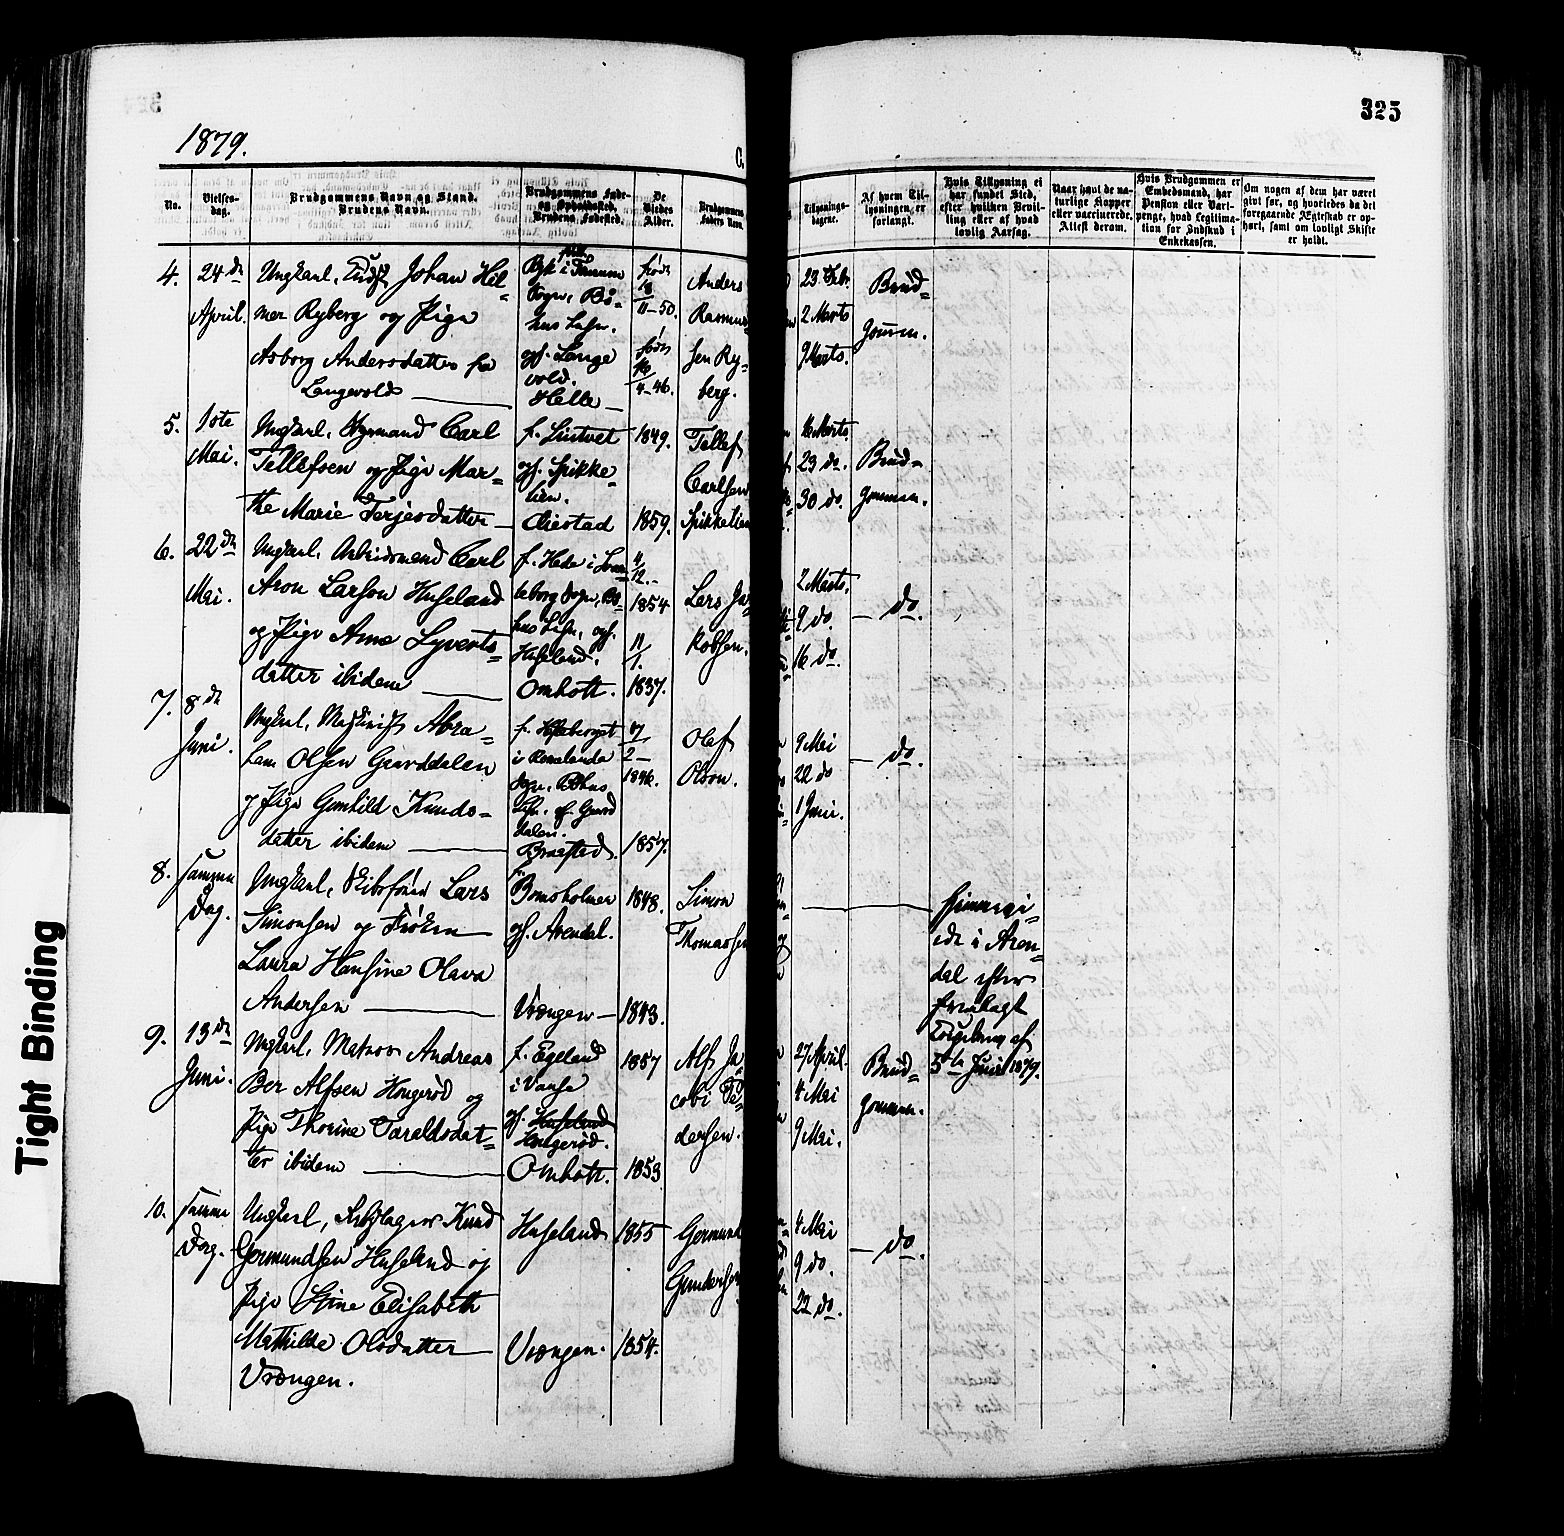 325
1879.
C.
No.
Vielses-
dag.
Brudgommens Navn og Stand.
Brudens Navn.
Brudgommens Føde-
og Opholdssted.
Brudens Fødested.
De
Viedes
Alder.
Brudgommens
Faders Navn.
Tillysnings-
dagene.
Af hvem Til-
lysningen er
forlangt.
Hvis Tillysning ei
har fundet Sted,
efter hvilken Bevil-
ling eller af hvad
lovlig Aarsag.
Naar havt de na-
turlige Kopper
eller vaccinerede.
Attest derom.
Hvis Brudgommen er
Embedsmand, har
Pension eller Vart-
penge, hvad Legitima-
tion for Indskud i
Enkekassen.
Om nogen af dem har været
givt før, og hvorledes da det
foregaaende Ægteskab er op-
hørt, samt om lovligt Skifte
er holdt.
4.
24de
April.
Ungkarl, Johan Hil-
mer Ryberg og Pige
Asborg Andersdatter fra
Langevold
Sogn, Bå-
hus Lehn.
opf. Lange
vold.
Helle
født
18
11-50.
født
4-46.
Anders
Rasmus-
sen Ry-
berg.
23 Febr.
2 Marts
9 Marts.
Brud-
gommen.
5.
1ste
Mai.
Ungkarl, Styrmand Carl
Tellefsen og Pige Mar-
the Marie Terjesdatter
f. Lintvet
opf. Spikke-
lien.
Øiestad
1849.
1859.
Tellef
Carlsen
Spikkelien
16 Marts
23 do.
30 do.
Brud-
gommen.
6.
22de
Mai.
Ungkarl, Arbeidsmand Carl
Aron Larson Huseland
og Pige Anne Syverts-
datter ibidem
f. Hede i
Sogn,
hus Lehn, opf.
Huseland.
Omholt.
11/12
1854
11/1.
1837.
Lars Ja-
kobsen.
2 Marts.
9 do.
16 do.
do.
7.
8de
Juni.
Ungkarl, Maskinist Abra-
ham Olsen Gaarddalen
og Pige Gunhild Knuds-
datter ibidem
i Romelanda
Sogn, Båhus
Lehn. opf. Gaard
dalen.
7/2
1846.
1857.
Olaf
Olson.
9 Mai
22 do
1 Juni.
do.
8.
samme
Dag.
Ungkarl, Skibsfører Lars
Simonsen og Frøken
Laura Hansine Olava
Andersen
Bomsholmen
opf. Arendal.
Vrængen
1848.
1843.
Simon
Thomassen
i Aren-
dal efter
fremlagt
af
5te Juni 1879.
9.
13de
Juni.
Ungkarl, Matros Andreas
Ber Alfsen Hongerød og
Pige Thorine Taraldsdat-
ter ibidem
f. Egeland
i Vanse
opf. Huseland
Omholt.
1857
1853
Alf Ja
cobi Pe-
dersen.
27 April.
4 Mai
9 Mai.
Brud-
gommen.
10.
samme
Dag.
Ungkarl, Knud
Gormundsen Huseland og
Pige Stine Elisabeth
Mathilde Olsdatter
Vrængen.
Huseland
Vrængen.
1855
1854.
Gormund
Gundersen
4 Mai
9 do.
22 do.
do.
Tight Binding